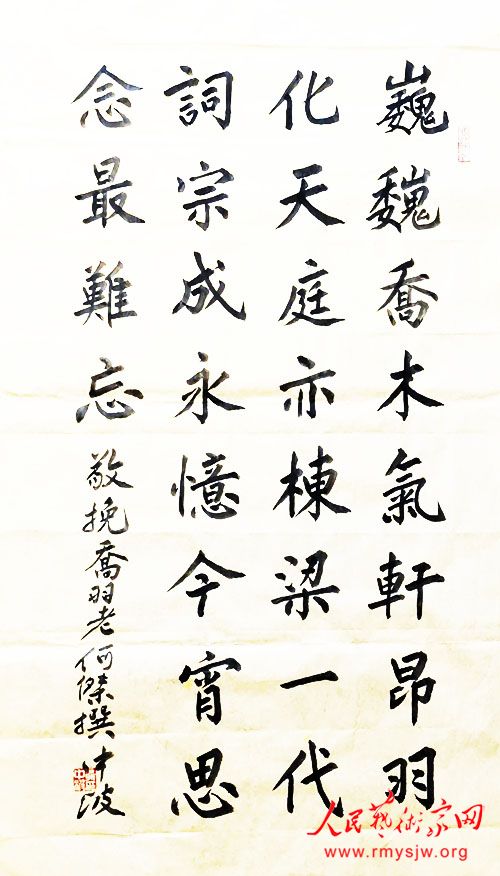 巍巍喬木氣軒昂羽
化天庭亦棟梁一代
詞宗成永憶今宵思
念最難忘
敬挽喬羽老何傑撰中波
人民藝術家网
www.rmysjw.org